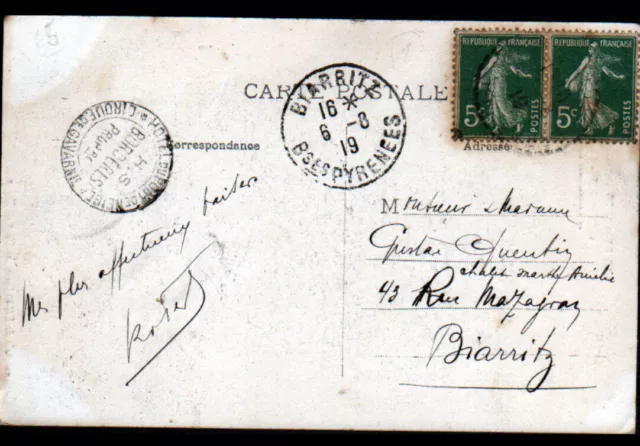 65
CARTE POSTALE
Correspondance
Adresse
BIARRITZ
16 *
6 - 8
19
Bses PYRENEES
REPUBLIQUE FRANÇAISE
5c
REPUBLIQUE FRANÇAISE
5c
CIRQUE DE GAVARNIE
HOTEL DU VIGNEMALE
BORDÈRES
PROP.
Mes plus affectueux baisers
Robert
Monsieur & Madame
Gustave Quentin
chalet Marie Amélie
43 Rue Mazagran
Biarritz